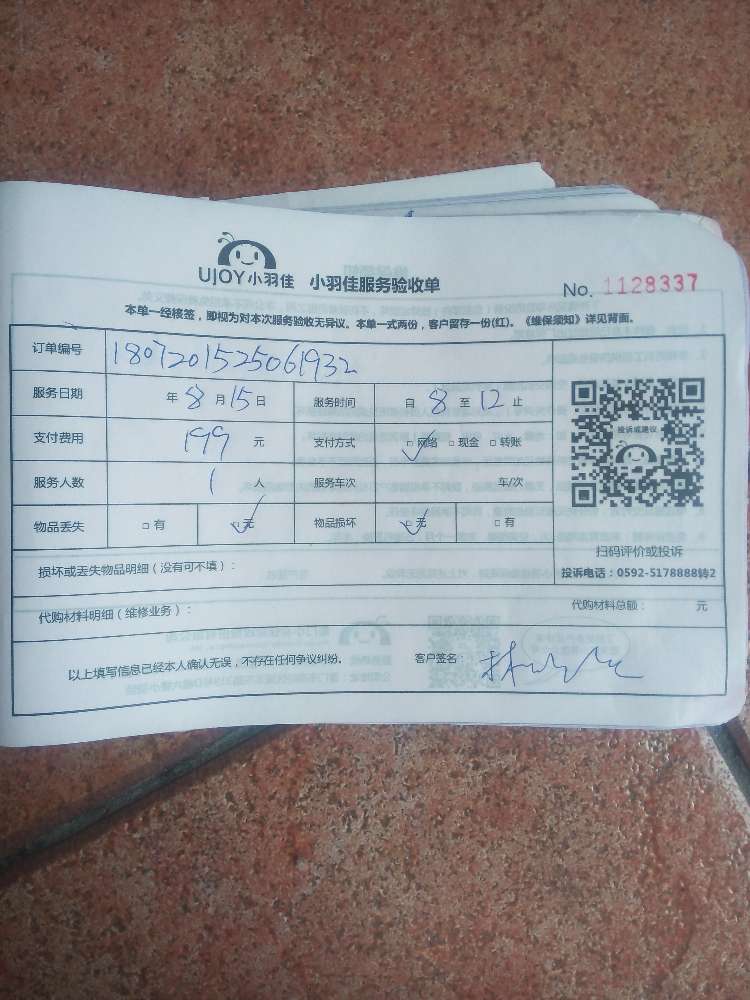 UJOY小羽佳 小羽佳服务验收单 No. 1128337
本单一经核签，即视为对本次服务验收无异议。本单一式两份，客户留存一份(红)。《维保须知》详见背面。
订单编号 1807201525061932
服务日期 年 8 月 15 日 服务时间 自 8 至 12 止
支付费用 199 元 支付方式 □ 网络 □ 现金 □ 转账
投诉或建议
服务人数 1 人 服务车次 车/次
物品丢失 □ 有 □ 无 物品损坏 □ 无 □ 有
扫码评价或投诉
投诉电话：0592-5178888转2
损坏或丢失物品明细（没有可不填）：
代购材料明细（维修业务）： 代购材料总额： 元
以上填写信息已经本人确认无误，不存在任何争议纠纷。 客户签名：